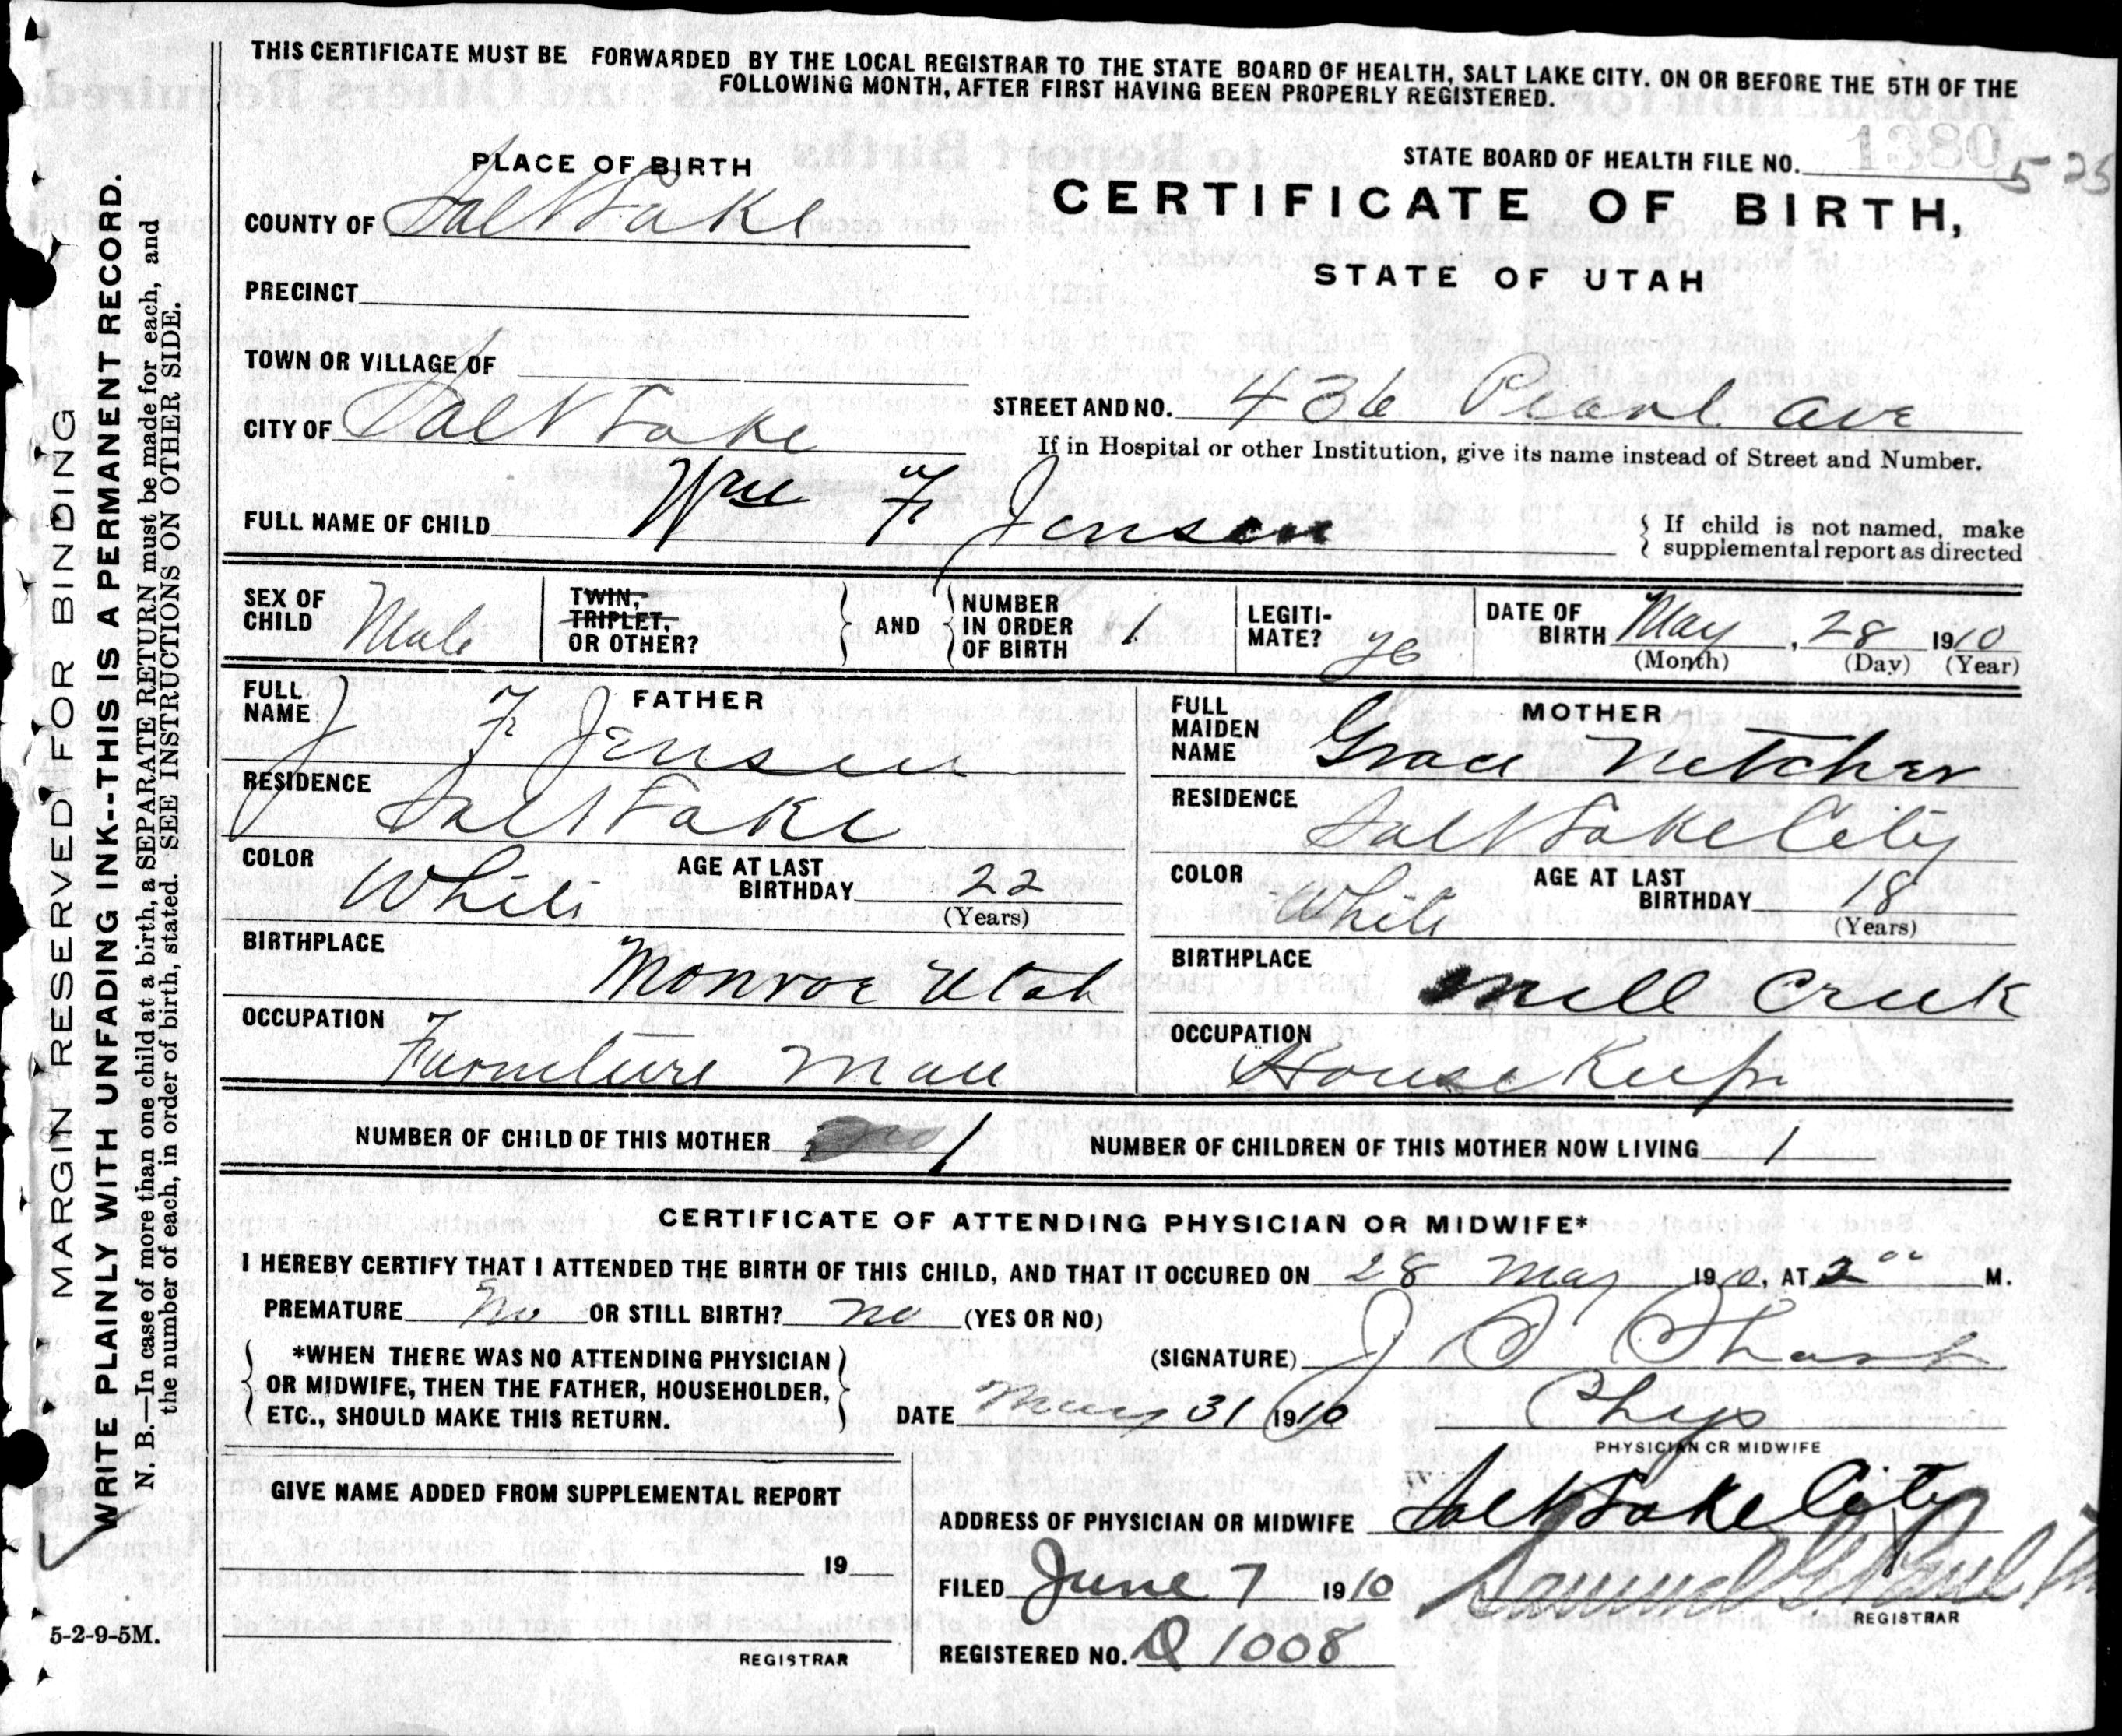 THIS CERTIFICATE MUST BE FORWARDED BY THE LOCAL REGISTRAR TO THE STATE BOARD OF HEALTH, SALT LAKE CITY. ON OR BEFORE THE 5TH OF THE
FOLLOWING MONTH, AFTER FIRST HAVING BEEN PROPERLY REGISTERED.
STATE BOARD OF HEALTH FILE NO. 1380
525
PLACE OF BIRTH
CERTIFICATE OF BIRTH,
STATE OF UTAH
COUNTY OF Salt Lake
PRECINCT
TOWN OR VILLAGE OF
CITY OF Salt Lake
STREET AND NO. 436 Pearl ave
If in Hospital or other Institution, give its name instead of Street and Number.
FULL NAME OF CHILD Wm F. Jensen
If child is not named, make
supplemental report as directed
SEX OF CHILD Male
TWIN, TRIPLET, OR OTHER?
AND
NUMBER IN ORDER OF BIRTH 1
LEGITI-MATE?
DATE OF BIRTH May, 28 1910
(Month) (Day) (Year)
FATHER
FULL NAME J F. Jensen
RESIDENCE Salt Lake
COLOR White AGE AT LAST BIRTHDAY 22
(Years)
BIRTHPLACE Monroe Utah
OCCUPATION Furniture Man
MOTHER
FULL MAIDEN NAME Grace Netcher
RESIDENCE Salt Lake City
COLOR White AGE AT LAST BIRTHDAY 18
(Years)
BIRTHPLACE Mill Creek
OCCUPATION House Keepr
NUMBER OF CHILD OF THIS MOTHER 1 NUMBER OF CHILDREN OF THIS MOTHER NOW LIVING 1
CERTIFICATE OF ATTENDING PHYSICIAN OR MIDWIFE*
I HEREBY CERTIFY THAT I ATTENDED THE BIRTH OF THIS CHILD, AND THAT IT OCCURED ON 28 May 1910, AT 2 00 M.
PREMATURE No OR STILL BIRTH? no (YES OR NO)
*WHEN THERE WAS NO ATTENDING PHYSICIAN
OR MIDWIFE, THEN THE FATHER, HOUSEHOLDER,
ETC., SHOULD MAKE THIS RETURN.
(SIGNATURE) J
DATE May 31 1910
Phys
PHYSICIAN OR MIDWIFE
GIVE NAME ADDED FROM SUPPLEMENTAL REPORT
19
REGISTRAR
ADDRESS OF PHYSICIAN OR MIDWIFE Salt Lake City
FILED June 7 1910 Samuel G Paul
REGISTRAR
REGISTERED NO. 1008
MARGIN RESERVED FOR BINDING
WRITE PLAINLY WITH UNFADING INK--THIS IS A PERMANENT RECORD.
N. B.—In case of more than one child at a birth, a SEPARATE RETURN must be made for each, and
the number of each, in order of birth, stated. SEE INSTRUCTIONS ON OTHER SIDE.
5-2-9-5M.